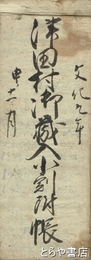 文化九年
津田村御蔵入小割附帳
申十一月
とらや書店